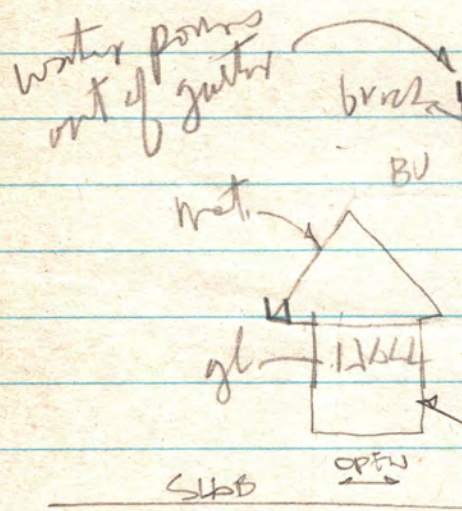 water pours
out of gutter
brick
BU
met.
gl
OPEN
SLAB